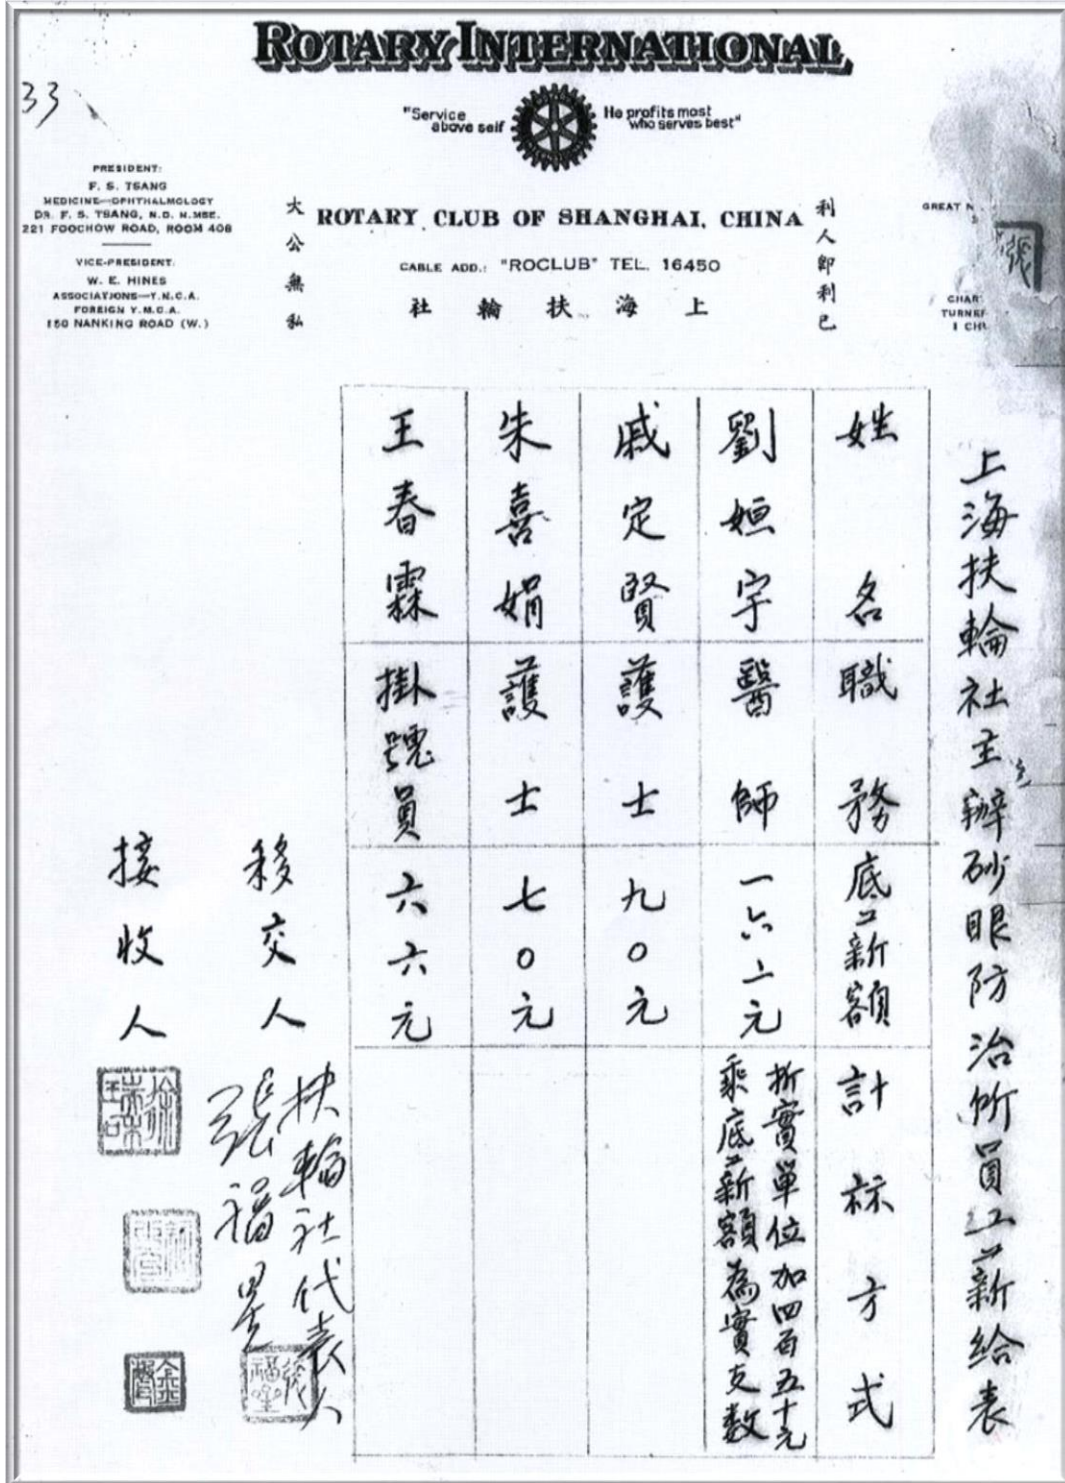 ROTARY INTERNATIONAL
33
"Service above self
He profits most who serves best"
PRESIDENT:
F. S. TSANG
MEDICINE—OPHTHALMOLOGY
DR. F. S. TSANG, N.D. H.MBE.
221 FOOCHOW ROAD, ROOM 408
VICE-PRESIDENT:
W. E. HINES
ASSOCIATIONS—Y.M.C.A.
FOREIGN Y.M.C.A.
150 NANKING ROAD (W.)
大公無私
ROTARY CLUB OF SHANGHAI, CHINA
CABLE ADD.: "ROCLUB" TEL. 16450
上海扶輪社
利人即利己
GREAT N
CHAR
TURNE
1 CH
上海扶輪社主辦砂眼防治所員工薪給表
姓名
職務
底薪額
計標方式
劉姮宇
醫師
一六二元
折實單位加四百五十元
乘底薪額為實支数
戚定賢
護士
九〇元
朱喜娟
護士
七〇元
王春霖
掛號員
六六元
移交人
扶輪社代表人
張福星
接收人